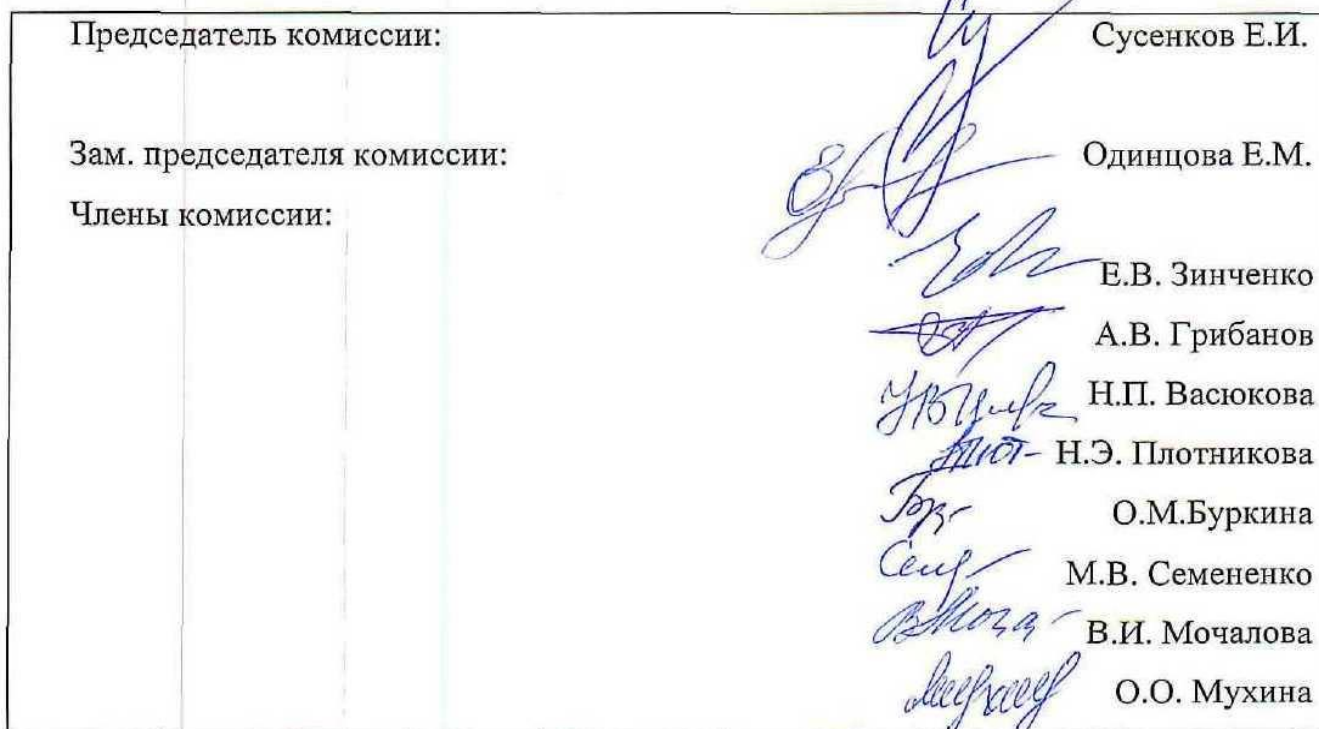 Председатель комиссии: Сусенков Е.И.
Зам. председателя комиссии: Одинцова Е.М.
Члены комиссии:
Е.В. Зинченко
А.В. Грибанов
Н.П. Васюкова
Н.Э. Плотникова
О.М.Буркина
М.В. Семененко
В.И. Мочалова
О.О. Мухина